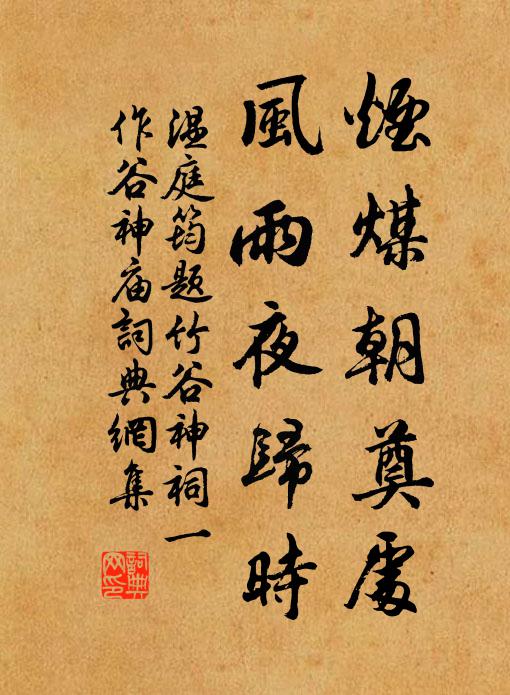 煙煤朝奠處
風雨夜歸時
溫庭筠題竹谷神祠一
作谷神庙詞典網集
詞典网印